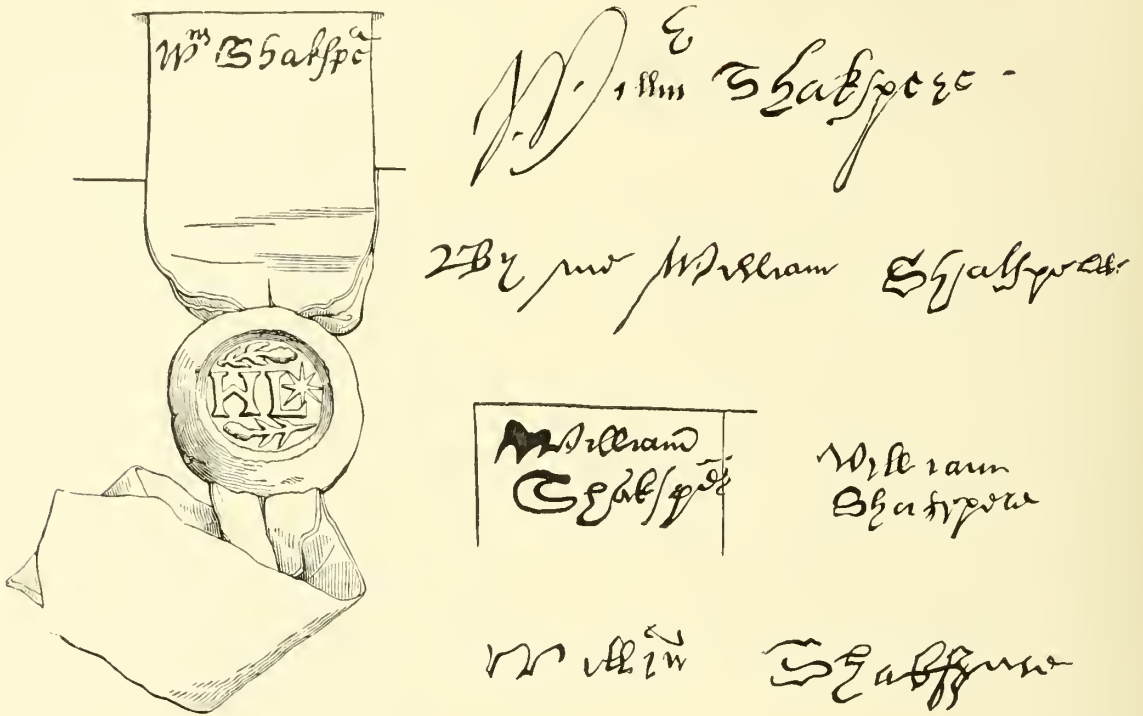 Wm Shakspē
Willm Shakspere
By me William Shakspeare
HL
William
Shakspēr
William
Shakspere
Willm Shakspere